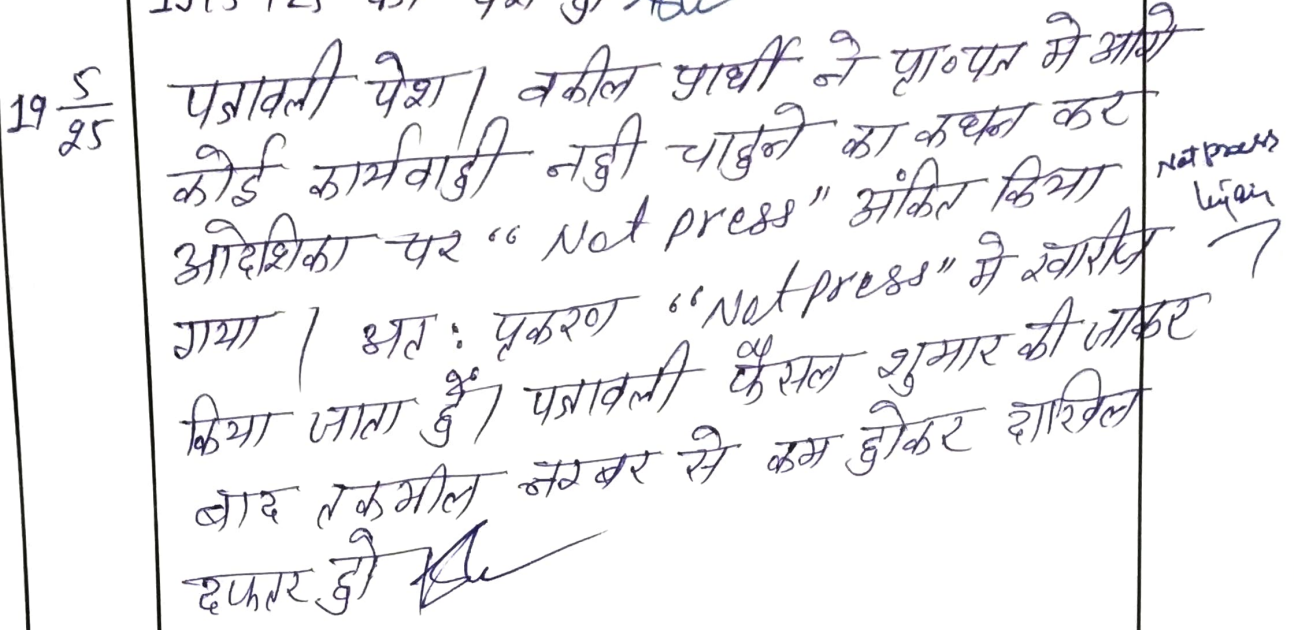 19 5/25
पत्रावली पेश। वकील प्रार्थी ने प्रा०पत्र मे आगे
कोई कार्यवाही नही चाहने का कथन कर
आदेशिका पर "Not press" अंकित किया
गया। अत: प्रकरण "Not press" मे खारीज
किया जाता हैं। पत्रावली फैसल शुमार की जाकर
बाद तकमील नम्बर से कम होकर दाखिल
दफ्तर हो
Not press